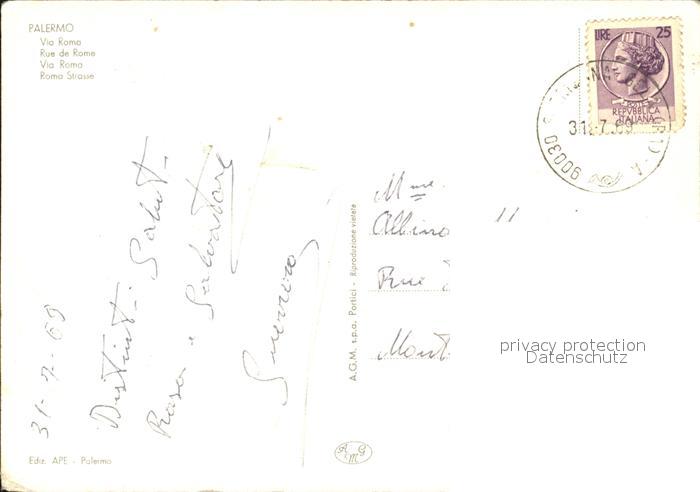 PALERMO
Via Roma
Rue de Rome
Via Roma
Roma Strasse
31-7-69
Distinti Saluti
Salvatore
Ediz. APE - Palermo
A.G.M. s.p.a. Portici - Riproduzione vietata
LIRE 25
POSTE
REPVBBLICA
ITALIANA
90030
31-7.69
Mme
Albino
Rue
Mont
privacy protection
Datenschutz